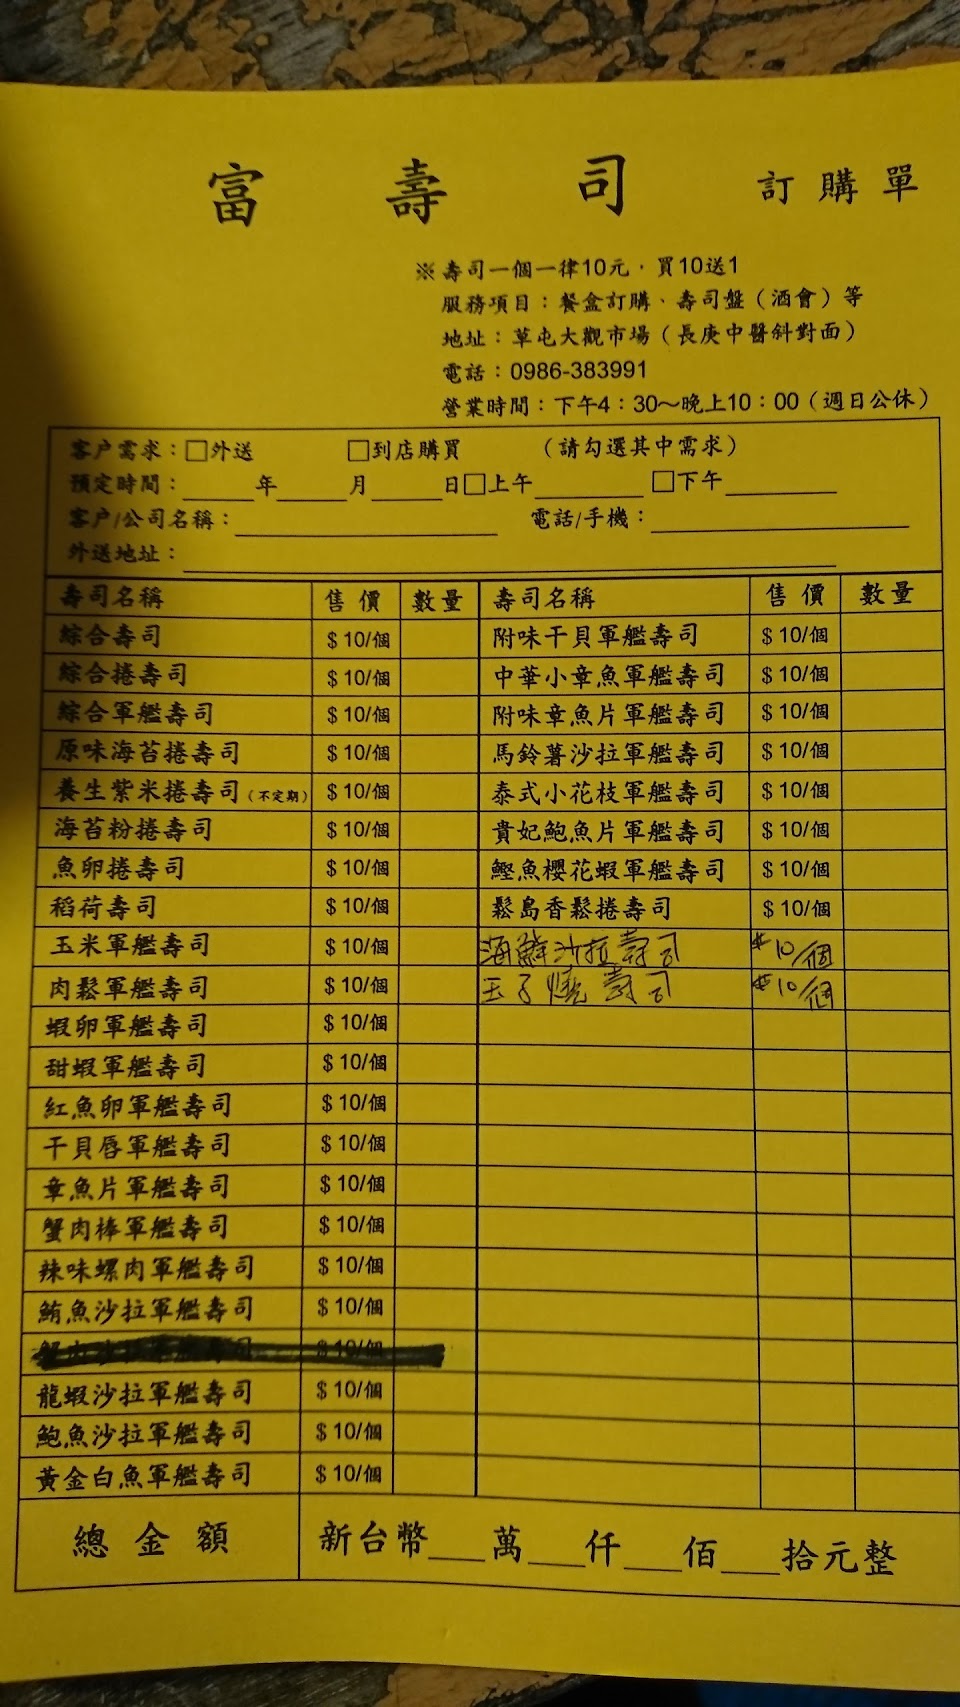 富壽司 訂購單
※壽司一個一律10元，買10送1
服務項目：餐盒訂購、壽司盤（酒會）等
地址：草屯大觀市場（長庚中醫斜對面）
電話：0986-383991
營業時間：下午4：30～晚上10：00（週日公休）
客户需求：□外送 □到店購買 （請勾選其中需求）
預定時間：____年____月____日□上午______ □下午______
客户/公司名稱：__________ 電話/手機：__________
外送地址：__________
壽司名稱 售價 數量 壽司名稱 售價 數量
綜合壽司 $10/個 附味干貝軍艦壽司 $10/個
綜合捲壽司 $10/個 中華小章魚軍艦壽司 $10/個
綜合軍艦壽司 $10/個 附味章魚片軍艦壽司 $10/個
原味海苔捲壽司 $10/個 馬鈴薯沙拉軍艦壽司 $10/個
養生紫米捲壽司（不定期） $10/個 泰式小花枝軍艦壽司 $10/個
海苔粉捲壽司 $10/個 貴妃鮑魚片軍艦壽司 $10/個
魚卵捲壽司 $10/個 鰹魚櫻花蝦軍艦壽司 $10/個
稻荷壽司 $10/個 鬆島香鬆捲壽司 $10/個
玉米軍艦壽司 $10/個 海鮮沙拉壽司 $10/個
肉鬆軍艦壽司 $10/個 玉子燒壽司 $10/個
蝦卵軍艦壽司 $10/個
甜蝦軍艦壽司 $10/個
紅魚卵軍艦壽司 $10/個
干貝唇軍艦壽司 $10/個
章魚片軍艦壽司 $10/個
蟹肉棒軍艦壽司 $10/個
辣味螺肉軍艦壽司 $10/個
鮪魚沙拉軍艦壽司 $10/個
$10/個
龍蝦沙拉軍艦壽司 $10/個
鮑魚沙拉軍艦壽司 $10/個
黃金白魚軍艦壽司 $10/個
總金額 新台幣___萬___仟___佰___拾元整